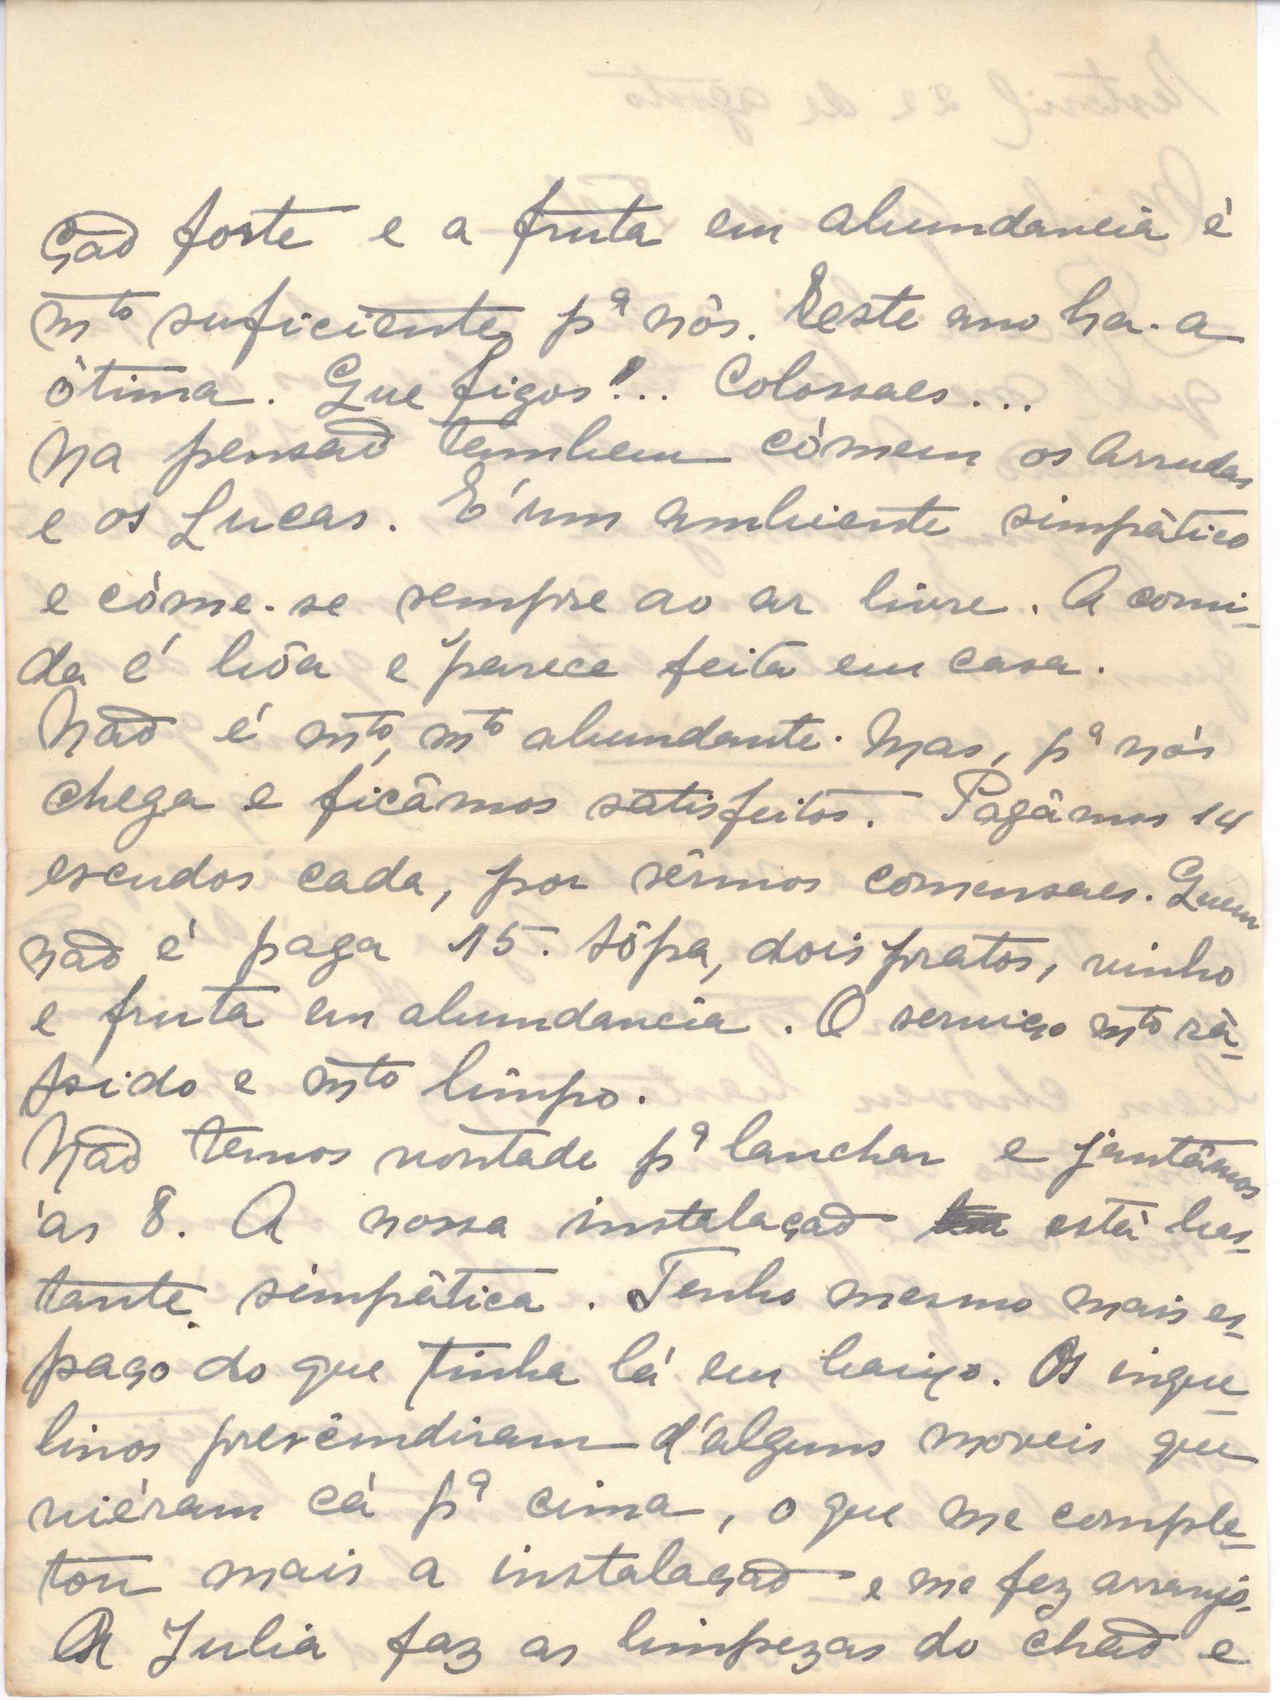 ção forte e a fruta em abundancia é
mto suficiente pª nós. Este ano ha-a
ótima. Que figos!... Colossaes...
Na pensão tambem cómem os Arrudas
e os Lucas. É um ambiente simpático
e cóme-se sempre ao ar livre. A comi-
da é bôa e parece feita em casa.
Não é mto, mto abundante. Mas, pª nós
chega e ficâmos satisfeitos. Pagâmos 14
escudos cada, por sêrmos comensaes. Quem
não é paga 15. Sôpa, dois pratos, vinho
e fruta em abundancia. O serviço mto rá-
pido e mto limpo.
Não temos vontade pª lanchar e jantâmos
ás 8. A nossa instalação está bas-
tante simpática. Tenho mesmo mais es-
paço do que tinha lá em baixo. Os inque-
linos prescindiram d'alguns moveis que
viéram cá pª cima, o que me comple-
tou mais a instalação e me fez arranjo.
A Julia faz as limpezas do chão e
Estoril 22 de agosto